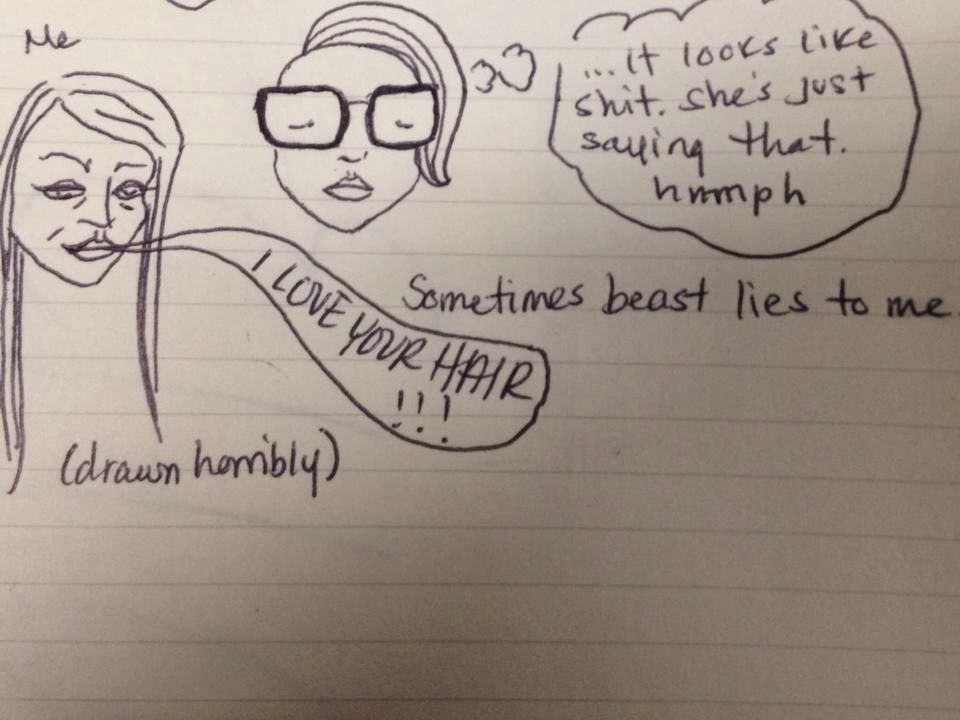 Me
...it looks like
shit. She's just
saying that.
hmmph
I LOVE YOUR HAIR
!!!
Sometimes beast lies to me.
(drawn horribly)